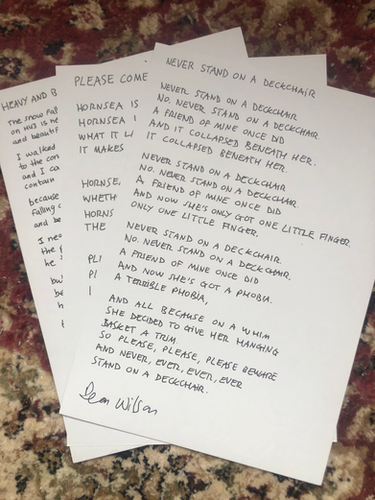 HEAVY AND B
The snow fal
on Hull is he
and beautif
I walked
to the con
and I co
contain
because
falling
and be
I nee
the
he
bu
be
PLEASE COME
HORNSEA IS
HORNSEA
WHAT IT
IT MAKES
HORNSE
WHETH
HORNS
THE
PL
NEVER STAND ON A DECKCHAIR
NEVER STAND ON A DECKCHAIR
NO. NEVER STAND ON A DECKCHAIR
A FRIEND OF MINE ONCE DID
AND IT COLLAPSED BENEATH HER.
IT COLLAPSED BENEATH HER.
NEVER STAND ON A DECKCHAIR.
NO. NEVER STAND ON A DECKCHAIR.
A FRIEND OF MINE ONCE DID
AND NOW SHE'S ONLY GOT ONE LITTLE FINGER
ONLY ONE LITTLE FINGER.
NEVER STAND ON A DECKCHAIR.
NO. NEVER STAND ON A DECKCHAIR.
A FRIEND OF MINE ONCE DID
AND NOW SHE'S GOT A PHOBIA.
A TERRIBLE PHOBIA,
AND ALL BECAUSE ON A WHIM
SHE DECIDED TO GIVE HER HANGING
BASKET A TRIM.
SO PLEASE, PLEASE, PLEASE BEWARE
AND NEVER, EVER, EVER, EVER
STAND ON A DECKCHAIR.
Dean Wilson